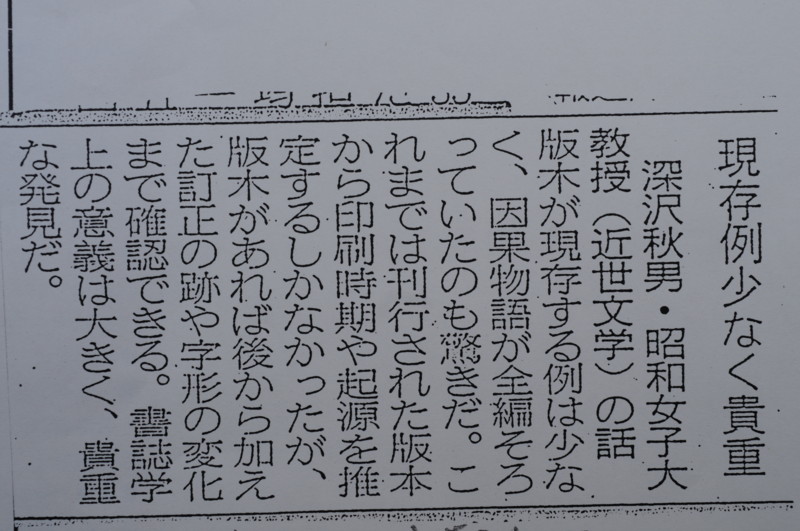 現存例少なく貴重
深沢秋男・昭和女子大
教授（近世文学）の話
版木が現存する例は少な
く、因果物語が全編そろ
っていたのも驚きだ。こ
れまでは刊行された版本
から印刷時期や起源を推
定するしかなかったが、
版木があれば後から加え
た訂正の跡や字形の変化
まで確認できる。書誌学
上の意義は大きく、貴重
な発見だ。